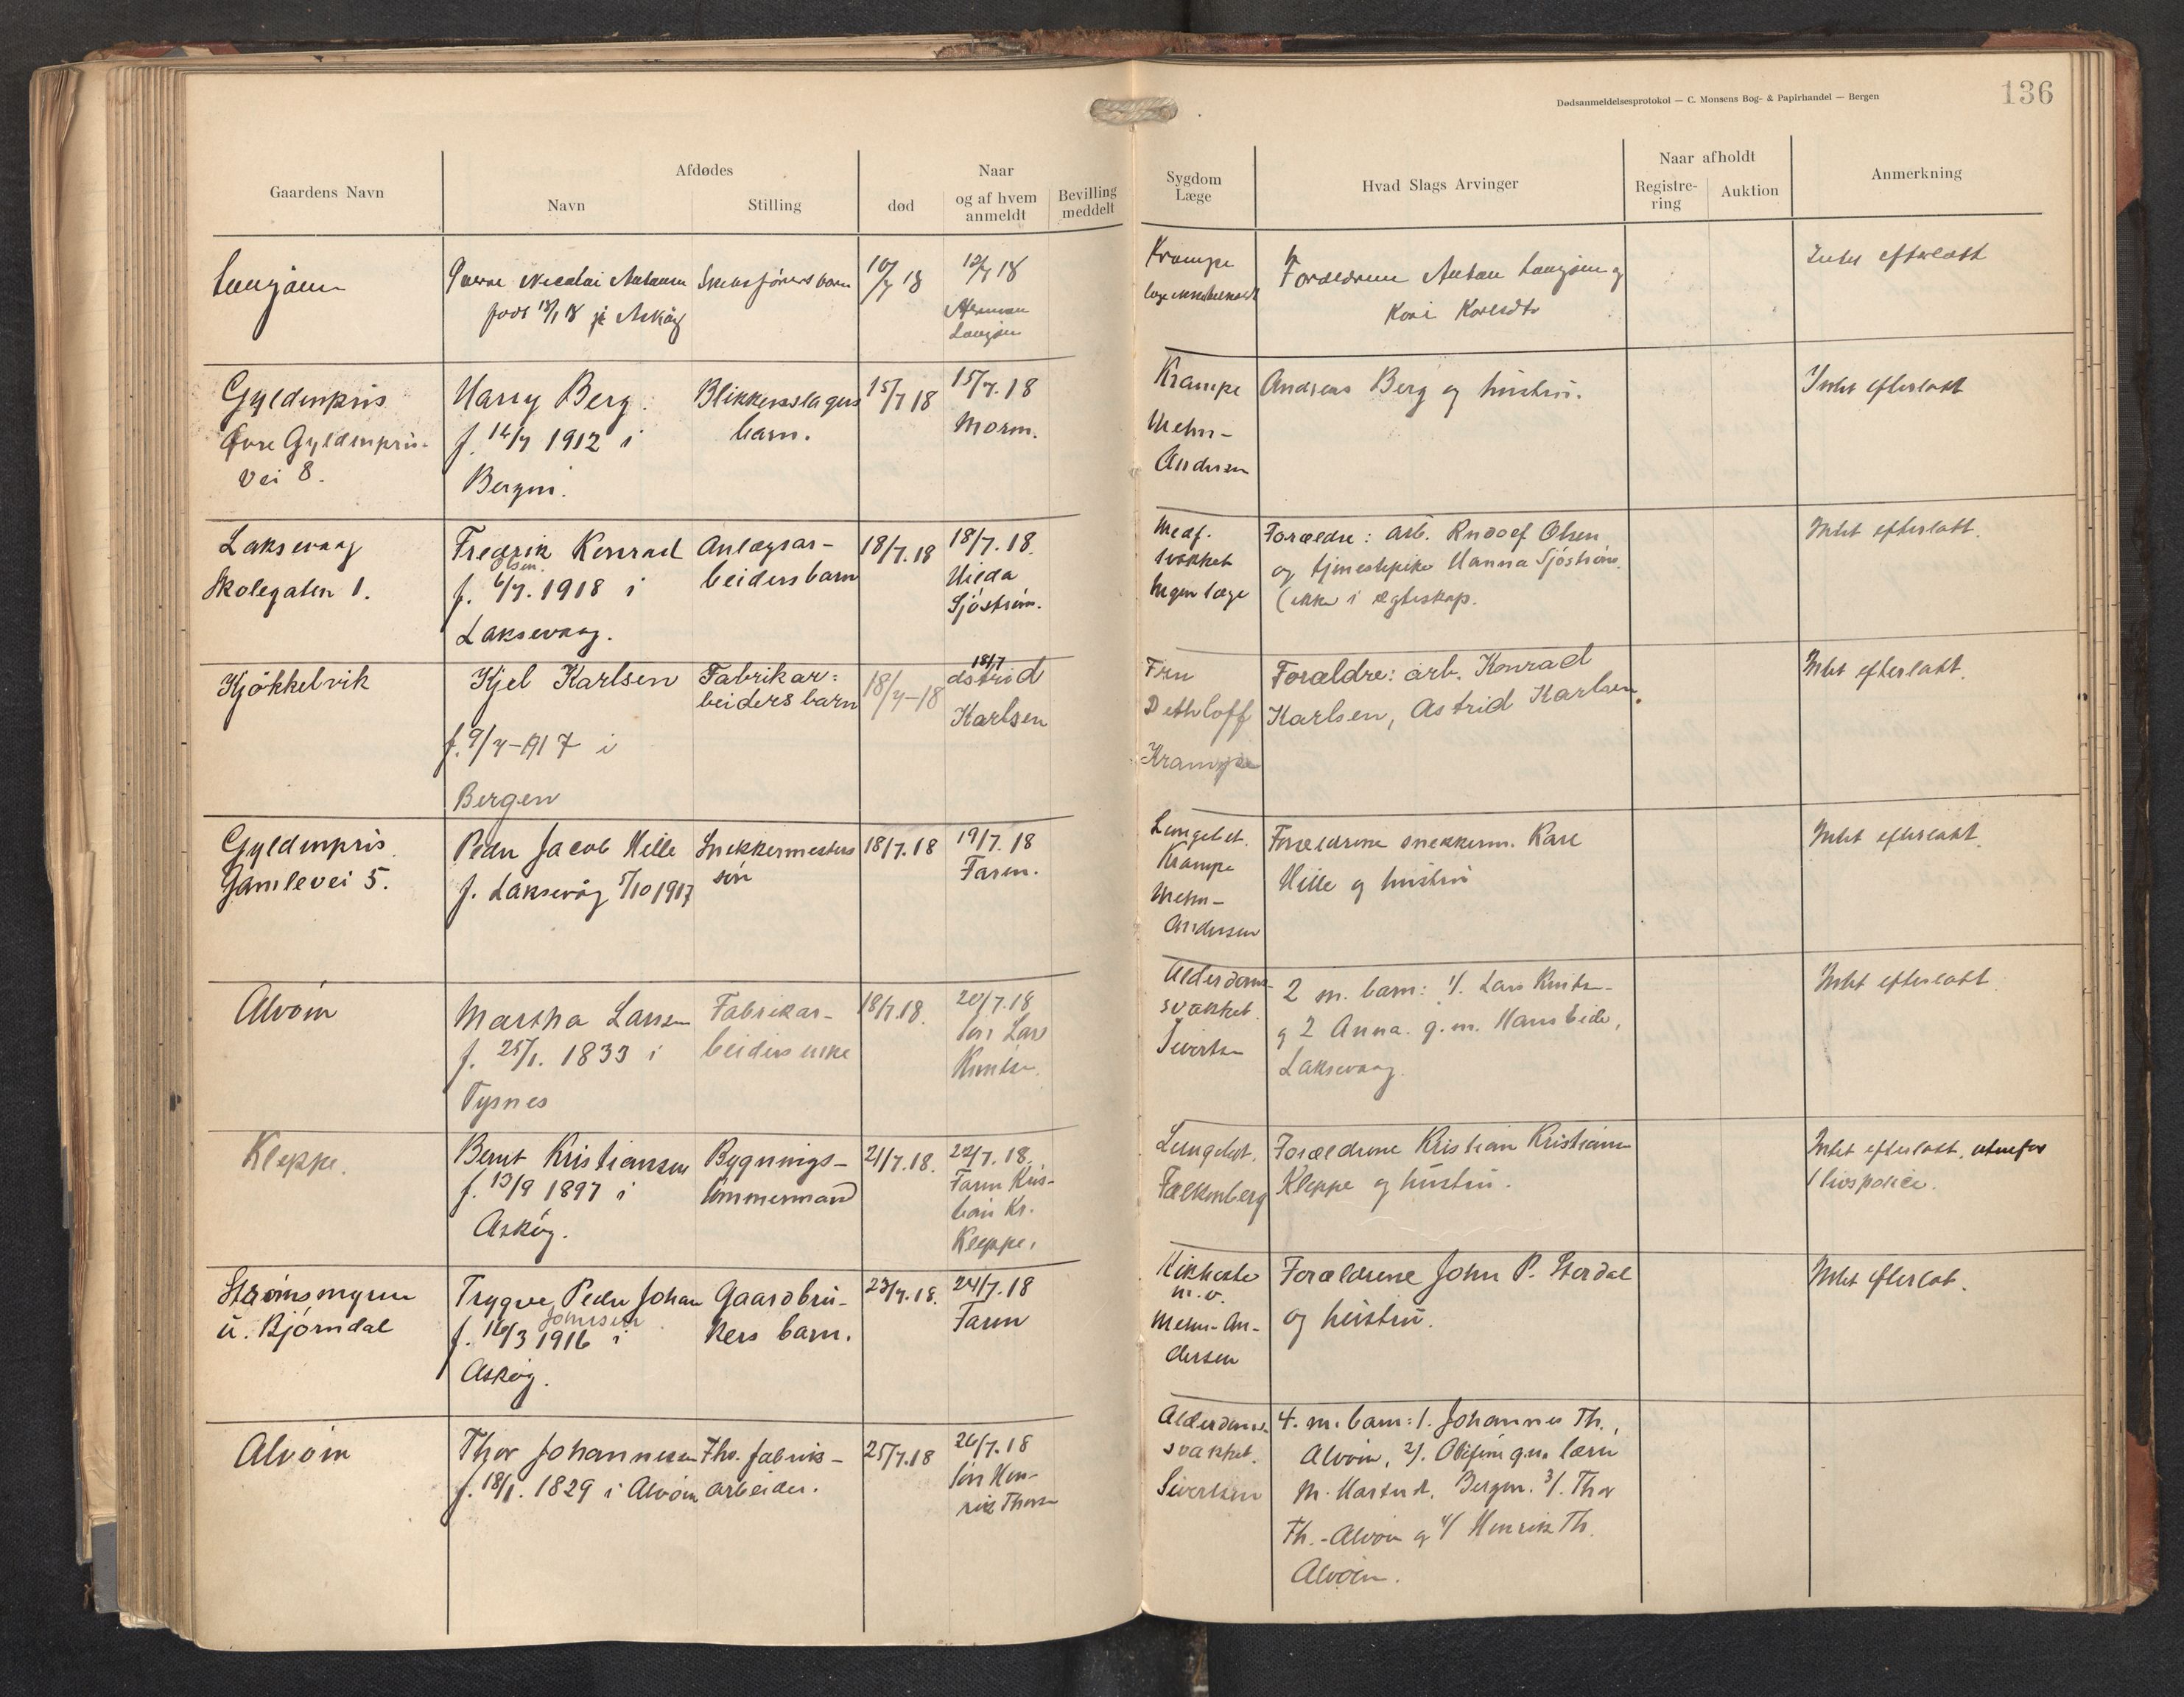 Dødsanmeldelsesprotokol — C. Monsens Bog- & Papirhandel — Bergen
136
Gaardens Navn
Afdødes
Navn
Stilling
død
Naar
og af hvem
anmeldt
Bevilling
meddelt
Sygdom
Læge
Hvad Slags Arvinger
Naar afholdt
Registre-
ring
Auktion
Anmerkning
Nicolai
født 18/1 18 Askøy
10/7 18
12/7 18
Krampe
Forældrene
Kari
Intet efterlatt
Gyldenpris
Øvre Gyldenpris-
vei 8.
Harry Berg.
f. 14/7 1912 i
Bergen.
Blikkenslagers
barn.
15/7 18
15/7. 18
Morm.
Krampe
Mehn-
Andersen
Andreas Berg og hustru.
Intet efterlatt
Laksevaag
Skolegaten 1.
Fredrik Konrad
Olsen.
f. 6/7. 1918 i
Laksevaag.
Anlægsar-
beiders barn
18/7.18
18/7. 18.
Hilda
Sjøstrøm.
Medf.
svakhet
Ingen læge
Forældre: arb. Rudolf Olsen
og tjenestepike Hanna Sjøstrøm
(ikke i ægteskap.
Intet efterlatt.
Kjøkkelvik
Kjel Karlsen
f. 9/7-1917 i
Bergen
Fabrikar:
beiders barn
18/7-18
18/7
Astrid
Karlsen
Fru
Dethloff
Krampe
Forældre: arb. Konrad
Karlsen, Astrid Karlsen.
Intet efterlatt.
Gyldenpris
Gamlevei 5.
Peder Jacob Hille
f. Laksevåg 5/10 1917
Snekkermesters
søn
18/7.18
19/7. 18
Farm.
Lungebet.
Krampe
Mehn-
Andersen
Forældrene snekkerm. Karl
Hille og hustru
Intet efterlatt.
Alvøen
Martha Larsen
f. 25/1. 1833 i
Tysnes
Fabrikar-
beiders enke
18/7.18.
20/7.18
søn Lars
Knutsen.
Alderdoms-
svakhet.
Sivertsen
2 m. barn: 1/. Lars Knutsen
og 2 Anna. g.m. Hans Eide,
Laksevaag.
Intet efterlatt
Kleppe.
Bernt Kristiansen
f. 13/9 1897 i
Askøy.
Bygnings-
tømmermand
21/7.18.
22/7. 18.
Farm Kris-
tian Kr.
Kleppe.
Lungebet.
Falkenberg
Forældrene Kristian Kristiansen
Kleppe og hustru.
Intet efterlatt, utenfor
1 livspolice.
Strømsmyren
u. Bjørndal
Trygve Peder Johan
Johnsen
f. 16/3 1916 i
Askøy.
Gaardbru-
kers barn.
23/7.18.
24/7. 18
Farm
Kikhoste
m.v.
Mehn-An-
dersen
Forældrene John P. Stordal
og hustru.
Intet efterlat.
Alvøen
Thor Johannessen
f. 18/1. 1829 i Alvøen
Fhv. fabrik-
arbeider.
25/7.18
26/7. 18
søn Hen-
rik Thorsen
Alderdoms-
svakhet.
Sivertsen
4. m. barn: 1. Johannes Th.,
Alvøen, 2/. g.m.
M. Bergen. 3/. Thor
Th.-Alvøen og 4/ Henrik Th.
Alvøen.